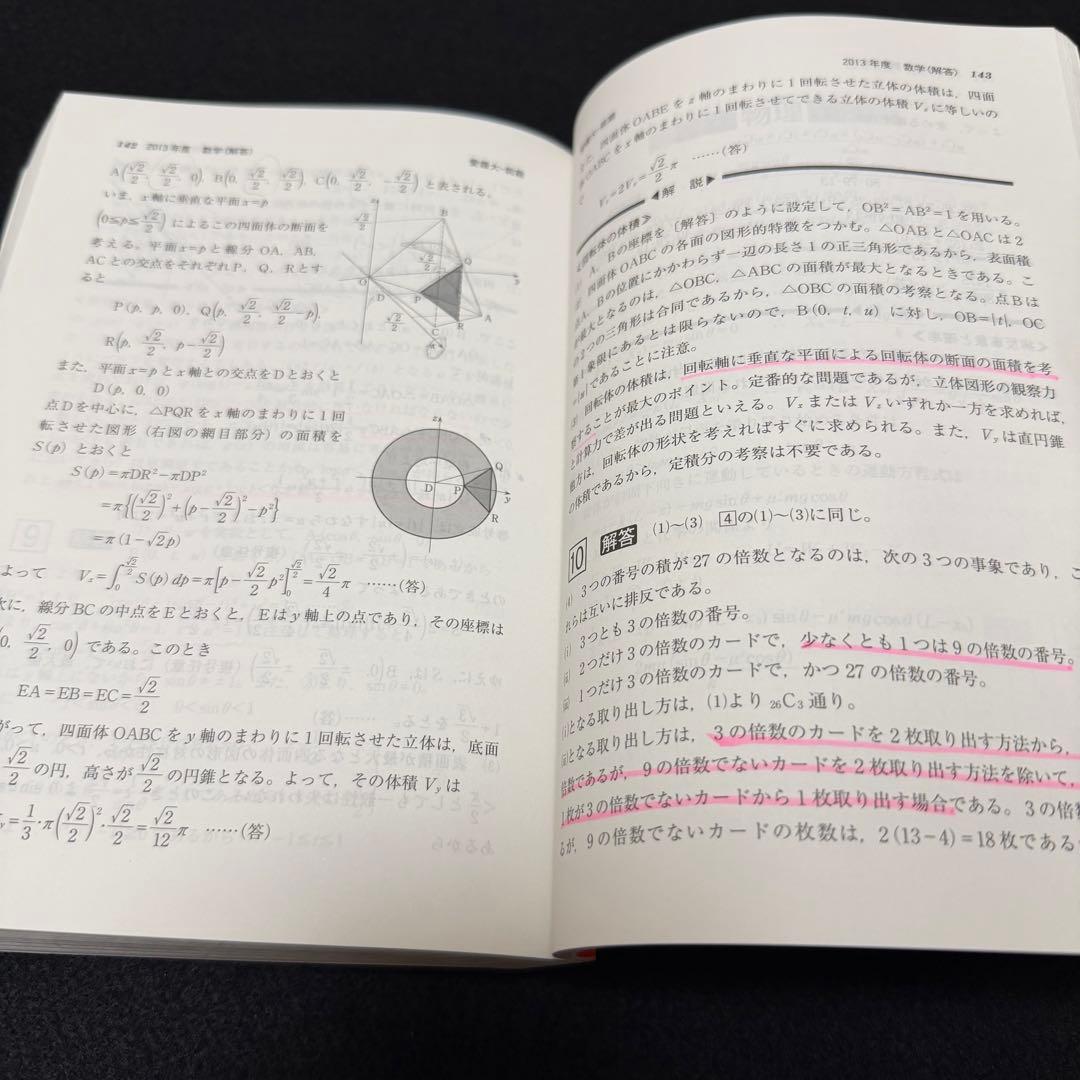 142 2013年度 数学〈解答〉
愛媛大-前期
A(√2/2, √2/2, 0), B(0, √2/2, √2/2), C(0, √2/2, -√2/2) と表される。
いま, x軸に垂直な平面x=p
(0≦p≦√2/2) によるこの四面体の断面を
考える。平面x=pと線分OA, AB,
ACとの交点をそれぞれP, Q, Rとす
ると
P(p, p, 0), Q(p, √2/2, √2/2-p),
R(p, √2/2, p-√2/2)
また, 平面x=pとx軸との交点をDとおくと
D(p, 0, 0)
点Dを中心に, △PQRをx軸のまわりに1回
転させた図形 (右図の網目部分) の面積を
S(p) とおくと
S(p)=πDR²-πDP²
=π{(√2/2)²+(p-√2/2)²-p²}
=π(1-√2p)
よって Vx=∫₀^(√2/2) S(p)dp=π[p-√2/2 p²]₀^(√2/2)=√2/4 π ……(答)
次に, 線分BCの中点をEとおくと, Eはy軸上の点であり, その座標は
0, √2/2, 0) である。このとき
EA=EB=EC=√2/2
がって, 四面体OABCをy軸のまわりに1回転させた立体は, 底面
√2/2の円, 高さが√2/2の円錐となる。よって, その体積Vyは
y=1/3・π(√2/2)²・√2/2=√2/12 π ……(答)
z
√2/2
B
√2/2
Q
O
D
P
y
√2/2
C
R
A
x
z
Q
D
P
y
R
2013年度 数学〈解答〉 143
四面体OABEをz軸のまわりに1回転させた立体の体積は, 四面
OABCをx軸のまわりに1回転させてできる立体の体積Vxに等しいの
Vz=2Vx=√2/2 π ……(答)
◀解 説▶
回転体の体積≫
A, Bの座標を〔解答〕のように設定して, OB²=AB²=1を用いる。
四面体OABCの各面の図形的特徴をつかむ。△OABと△OACは2
A, Bの位置にかかわらず一辺の長さ1の正三角形であるから, 表面積
最大となるのは, △OBC, △ABCの面積が最大となるときである。こ
2つの三角形は合同であるから, △OBCの面積の考察となる。点Bは
第1象限にあるとは限らないので, B(0, t, u) に対し, OB=|t|, OC
=|u|であることに注意。
回転体の体積は, 回転軸に垂直な平面による回転体の断面の面積を考
することが最大のポイント。定番的な問題であるが, 立体図形の観察力
と計算力で差が出る問題といえる。VxまたはVzいずれか一方を求めれば,
他方は, 回転体の形状を考えればすぐに求められる。また, Vyは直円錐
の体積であるから, 定積分の考察は不要である。
10 解答 (1)～(3) 4の(1)～(3)に同じ。
(4) 3つの番号の積が27の倍数となるのは, 次の3つの事象であり, こ
れらは互いに排反である。
(i) 3つとも3の倍数の番号。
(ii) 2つだけ3の倍数のカードで, 少なくとも1つは9の倍数の番号。
(iii) 1つだけ3の倍数のカードで, かつ27の倍数の番号。
(i)となる取り出し方は, (1)より ₂₆C₃ 通り。
(ii)となる取り出し方は, 3の倍数のカードを2枚取り出す方法から,
倍数であるが, 9の倍数でないカードを2枚取り出す方法を除いて,
1枚が3の倍数でないカードから1枚取り出す場合である。3の倍数
るが, 9の倍数でないカードの枚数は, 2(13-4)=18枚である